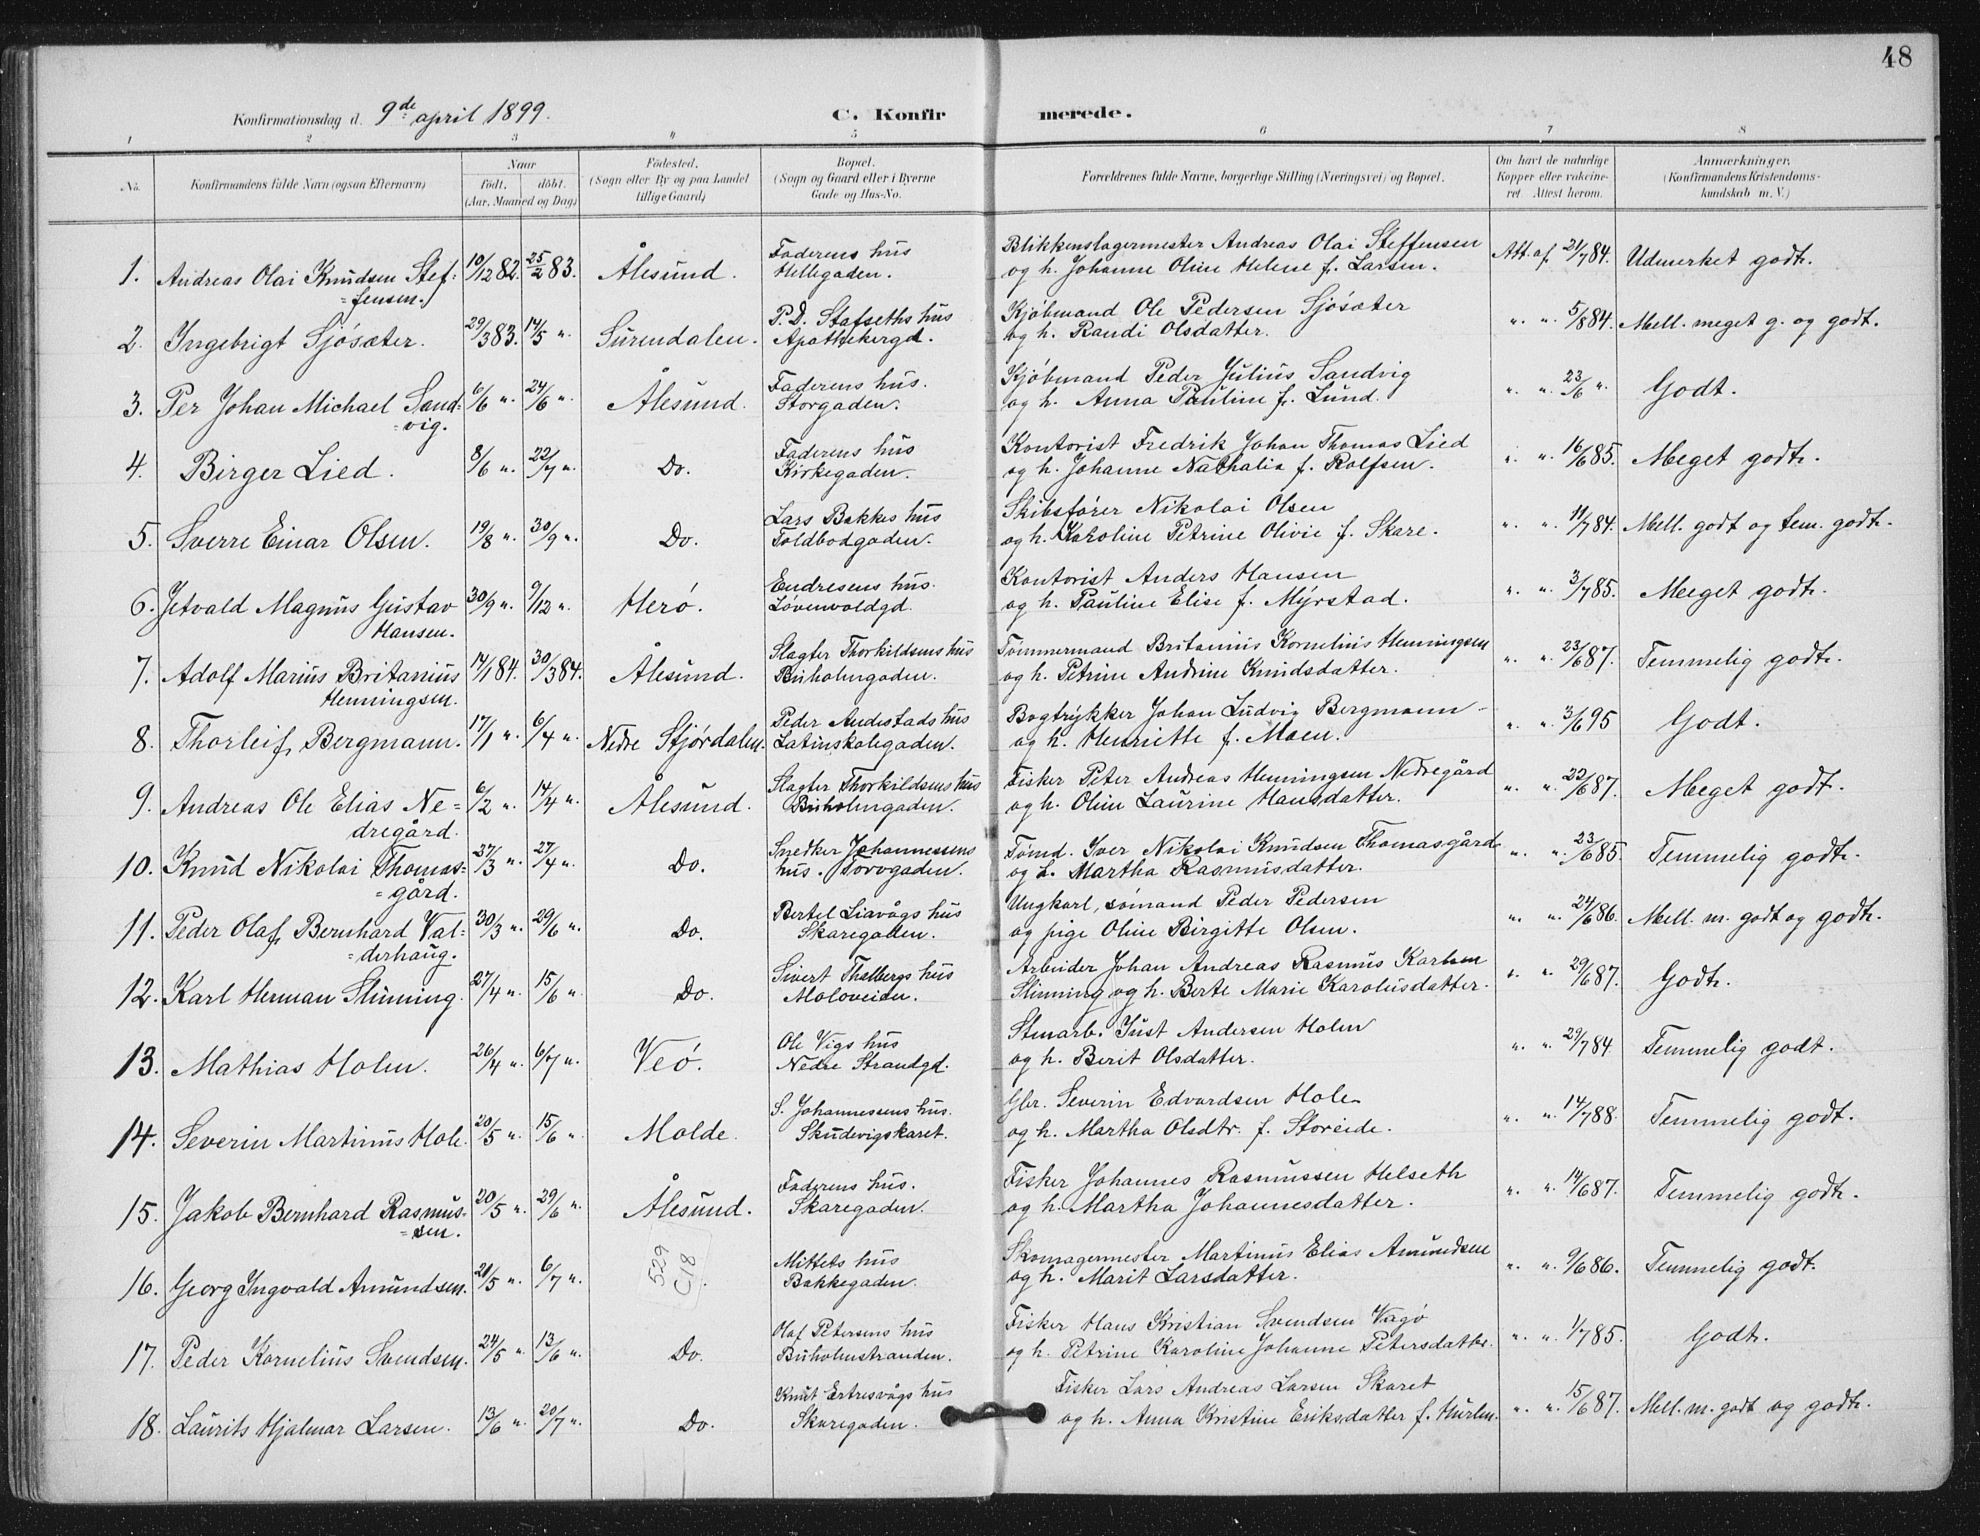 48
Konfirmationsdag d. 9de april 1899.
C. Konfirmerede.
1 2 3 4 5 6 7 8
No.
Konfirmandens fulde Navn (ogsaa Efternavn)
Naar
födt. döbt.
(Aar, Maaned og Dag)
Födested.
(Sogn eller By og paa Landet
tillige Gaard)
Bopæl.
(Sogn og Gaard eller i Byerne
Gade og Hus-No.
Forældrenes fulde Navne, borgerlige Stilling (Næringsvei) og Bopæl.
Om havt de naturlige
Kopper eller vakcine-
ret. Attest herom.
Anmærkninger.
(Konfirmandens Kristendoms-
kundskab m. V.)
1. Andreas Olai Knudsen Stef- 10/12 82. 25/2 83. Ålesund. Faderens hus Blikkenslagermester Andreas Olai Steffensen Att. af 21/7 84. Udmerket godt.
fensen. Hellegaden. og h. Johanne Oline Helene f. Larsen.
2. Ingebrigt Sjøsæter. 29/3 83. 14/5 " Surendalen. P. D. Stafseths hus Kjøbmand Ole Pedersen Sjøsæter " " 5/8 84. Mell. meget g. og godt.
Apothekergd. og h. Randi Olsdatter.
3. Per Johan Michael Sand- 6/6 " 24/6 " Ålesund. Faderens hus. Kjøbmand Peder Julius Sandvig " " 23/6 " Godt.
vig. Storgaden. og h. Anna Pauline f. Lund.
4. Birger Lied. 8/6 " 22/7 " Do. Faderens hus Kontorist Fredrik Johan Thomas Lied " " 16/6 85. Meget godt.
Kirkegaden. og h. Johanne Nathalia f. Rolfsen.
5. Sverre Einar Olsen. 19/8 " 30/9 " Do. Lars Bakkes hus Skibsfører Nikolai Olsen " " 11/7 84. Mell. godt og tem. godt.
Toldbodgaden. og h. Karoline Petrine Olivie f. Skare.
6. Jetvald Magnus Gustav 30/9 " 9/12 " Herø. Endresens hus. Kontorist Anders Hansen " " 3/7 85. Meget godt.
Hansen. Løvenvoldgd. og h. Pauline Elise f. Myrstad.
7. Adolf Marius Britanius 14/1 84. 30/3 84. Ålesund. Slagter Thorkildsens hus Tømmermand Britanius Kornelius Henningsen " " 23/6 87. Temmelig godt.
Henningsen. Buholmgaden. og h. Petrine Andrine Knudsdatter.
8. Thorleif Bergmann. 17/1 " 6/4 " Nedre Stjørdalen. Peder Andestads hus Bogtrykker Johan Ludvig Bergmann " " 3/6 95 Godt.
Latinskolegaden. og h. Henriette f. Moen.
9. Andreas Ole Elias Ne- 6/2 " 14/4 " Ålesund. Slagter Thorkildsens hus Fisker Peter Andreas Henningsen Nedregård " " 22/6 87. Meget godt.
dregård. Buholmgaden. og h. Oline Laurine Hansdatter.
10. Knud Nikolai Thomas- 27/3 " 27/4 " Do. Snedker Johannessens Tømd. Iver Nikolai Knudsen Thomasgård " " 23/6 85. Temmelig godt.
gård. hus. Torvgaden. og h. Martha Rasmusdatter.
11. Peder Olaf Bernhard Val- 30/3 " 29/6 " Do. Bertel Liavågs hus Ungkarl, sømand Peder Pedersen " " 24/6 86. Mell. m. godt og godt.
derhaug. Skaregaden. og pige Oline Birgitte Olsen.
12. Karl Herman Slinning. 27/4 " 15/6 " Do. Sivert Thalbergs hus Arbeider Johan Andreas Rasmus Karlsen " " 29/6 87. Godt.
Moloveien. Slinning og h. Berte Marie Karolusdatter.
13. Mathias Holm. 26/4 " 6/7 " Veø. Ole Vigs hus Stenarb. Just Andersen Holm " " 29/7 84. Temmelig godt.
Nedre Strandgd. og h. Berit Olsdatter.
14. Severin Martinus Hole. 20/5 " 15/6 " Molde. S. Johannessens hus. Gbr. Severin Edvardsen Hole " " 14/7 88. Temmelig godt.
Skudevigskaret. og h. Martha Olsdtr. f. Storeide.
15. Jakob Bernhard Rasmus- 20/5 " 29/6 " Ålesund. Faderens hus. Fisker Johannes Rasmussen Helseth " " 14/6 87. Temmelig godt.
sen. Skaregaden. og h. Martha Johannesdatter.
529
C18
16. Georg Ingvald Amundsen. 21/5 " 6/7 " Mittets hus Skomagermester Martinus Elias Amundsen " " 9/6 86. Temmelig godt.
Bakkegaden. og h. Marit Larsdatter.
17. Peder Kornelius Svendsen. 24/5 " 13/6 " Do. Olaf Petersens hus Fisker Hans Kristian Svendsen Vagø " " 1/7 85. Godt.
Buholmstranden. og h. Petrine Karoline Johanne Petersdatter.
18. Laurits Hjalmar Larsen. 13/6 " 20/7 " Do. Knut Ertresvågs hus Fisker Lars Andreas Larsen Skaret " " 15/6 87. Mell. m. godt og godt.
Skaregaden. og h. Anna Kristine Eriksdatter f. Hurlen.